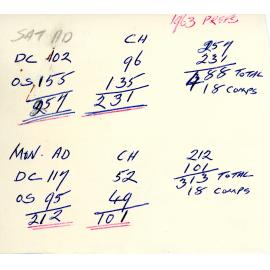 1963 PREFS
SAT AD CH 257
DC 102 96 231
OS 155 135 488 TOTAL
257 231 18 COMPS
MON. AD CH 212
DC 117 52 101
OS 95 49 313 TOTAL
212 101 18 COMPS